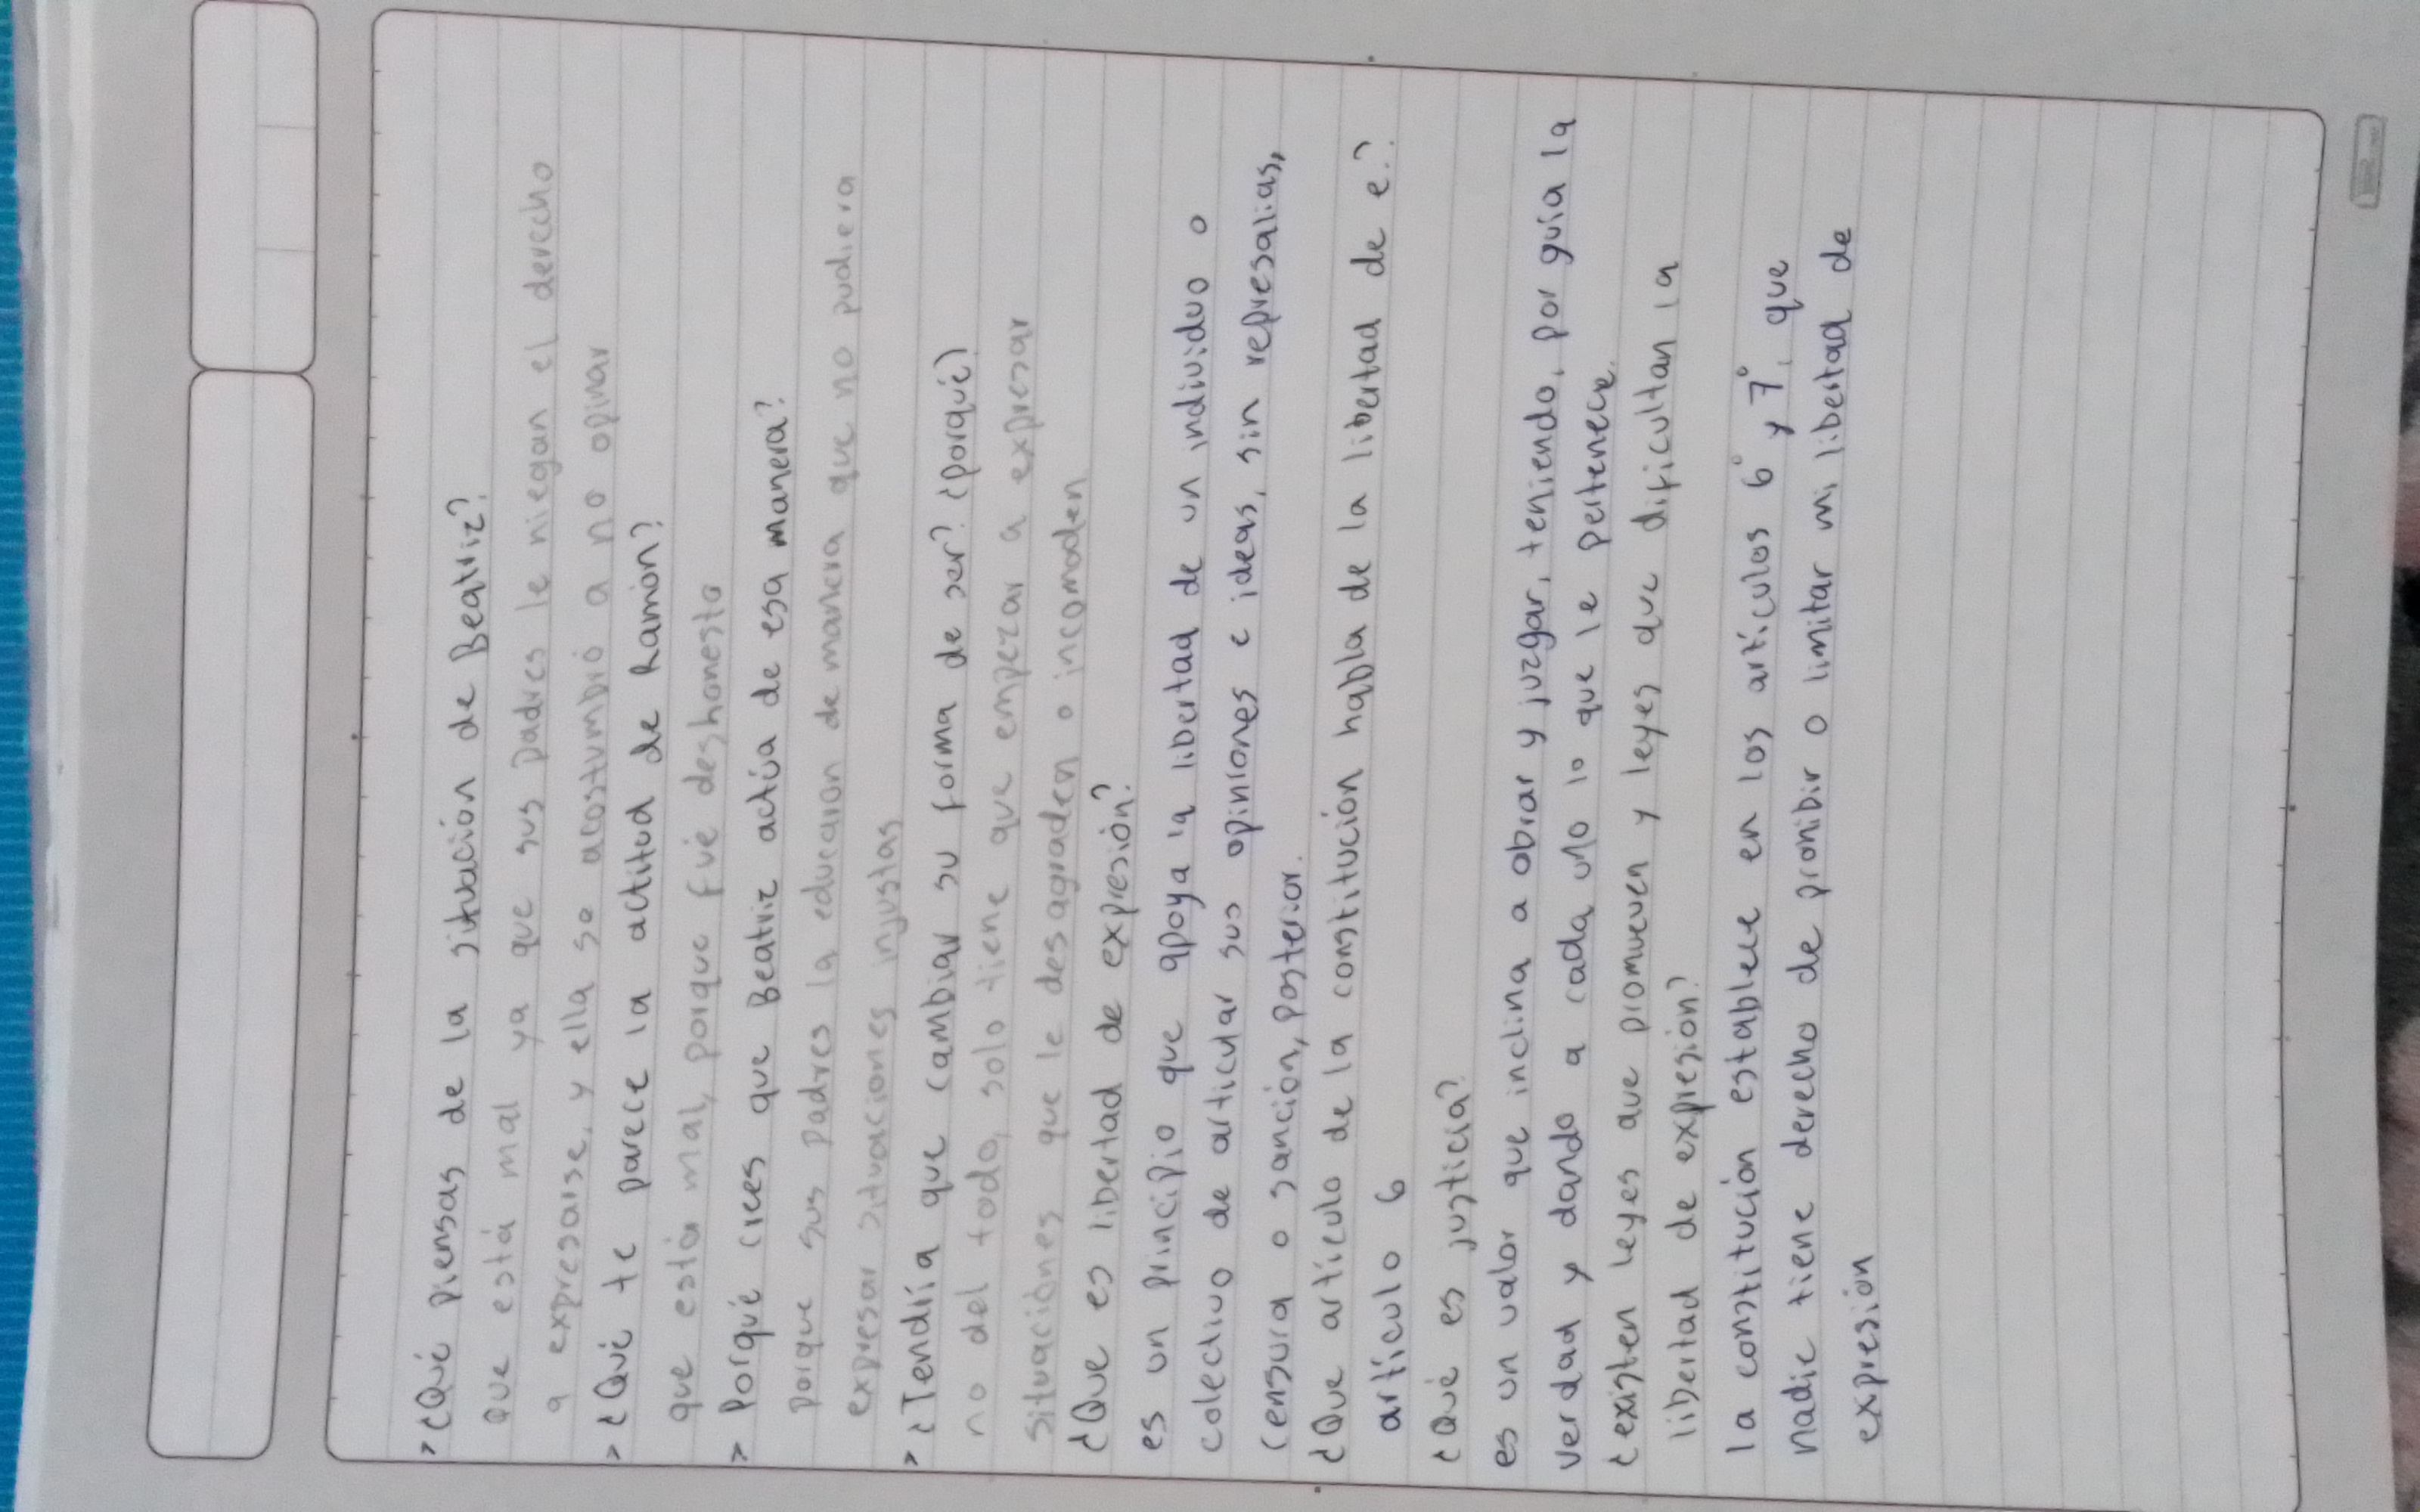 > ¿Qué piensas de la situación de Beatriz?
que está mal ya que sus padres le niegan el derecho
a expresarse, y ella se acostumbró a no opinar
> ¿Qué te parece la actitud de Ramón?
que está mal, porque fué deshonesto
> Porqué crees que Beatriz actúa de esa manera?
porque sus padres la educaron de manera que no pudiera
expresar situaciones injustas
> ¿Tendría que cambiar su forma de ser? ¿porqué?
no del todo, solo tiene que empezar a expresar
situaciones que le desagraden o incomoden
¿Que es libertad de expresión?
es un principio que apoya la libertad de un individuo o
colectivo de articular sus opiniones e ideas, sin represalias,
censura o sanción, posterior.
¿Que artículo de la constitución habla de la libertad de e.?
artículo 6
¿Qué es justicia?
es un valor que inclina a obrar y juzgar, teniendo, por guía la
verdad y dando a cada uno lo que le pertenece.
¿existen leyes que promueven y leyes que dificultan la
libertad de expresión?
la constitución establece en los artículos 6° y 7°, que
nadie tiene derecho de prohibir o limitar mi libertad de
expresión